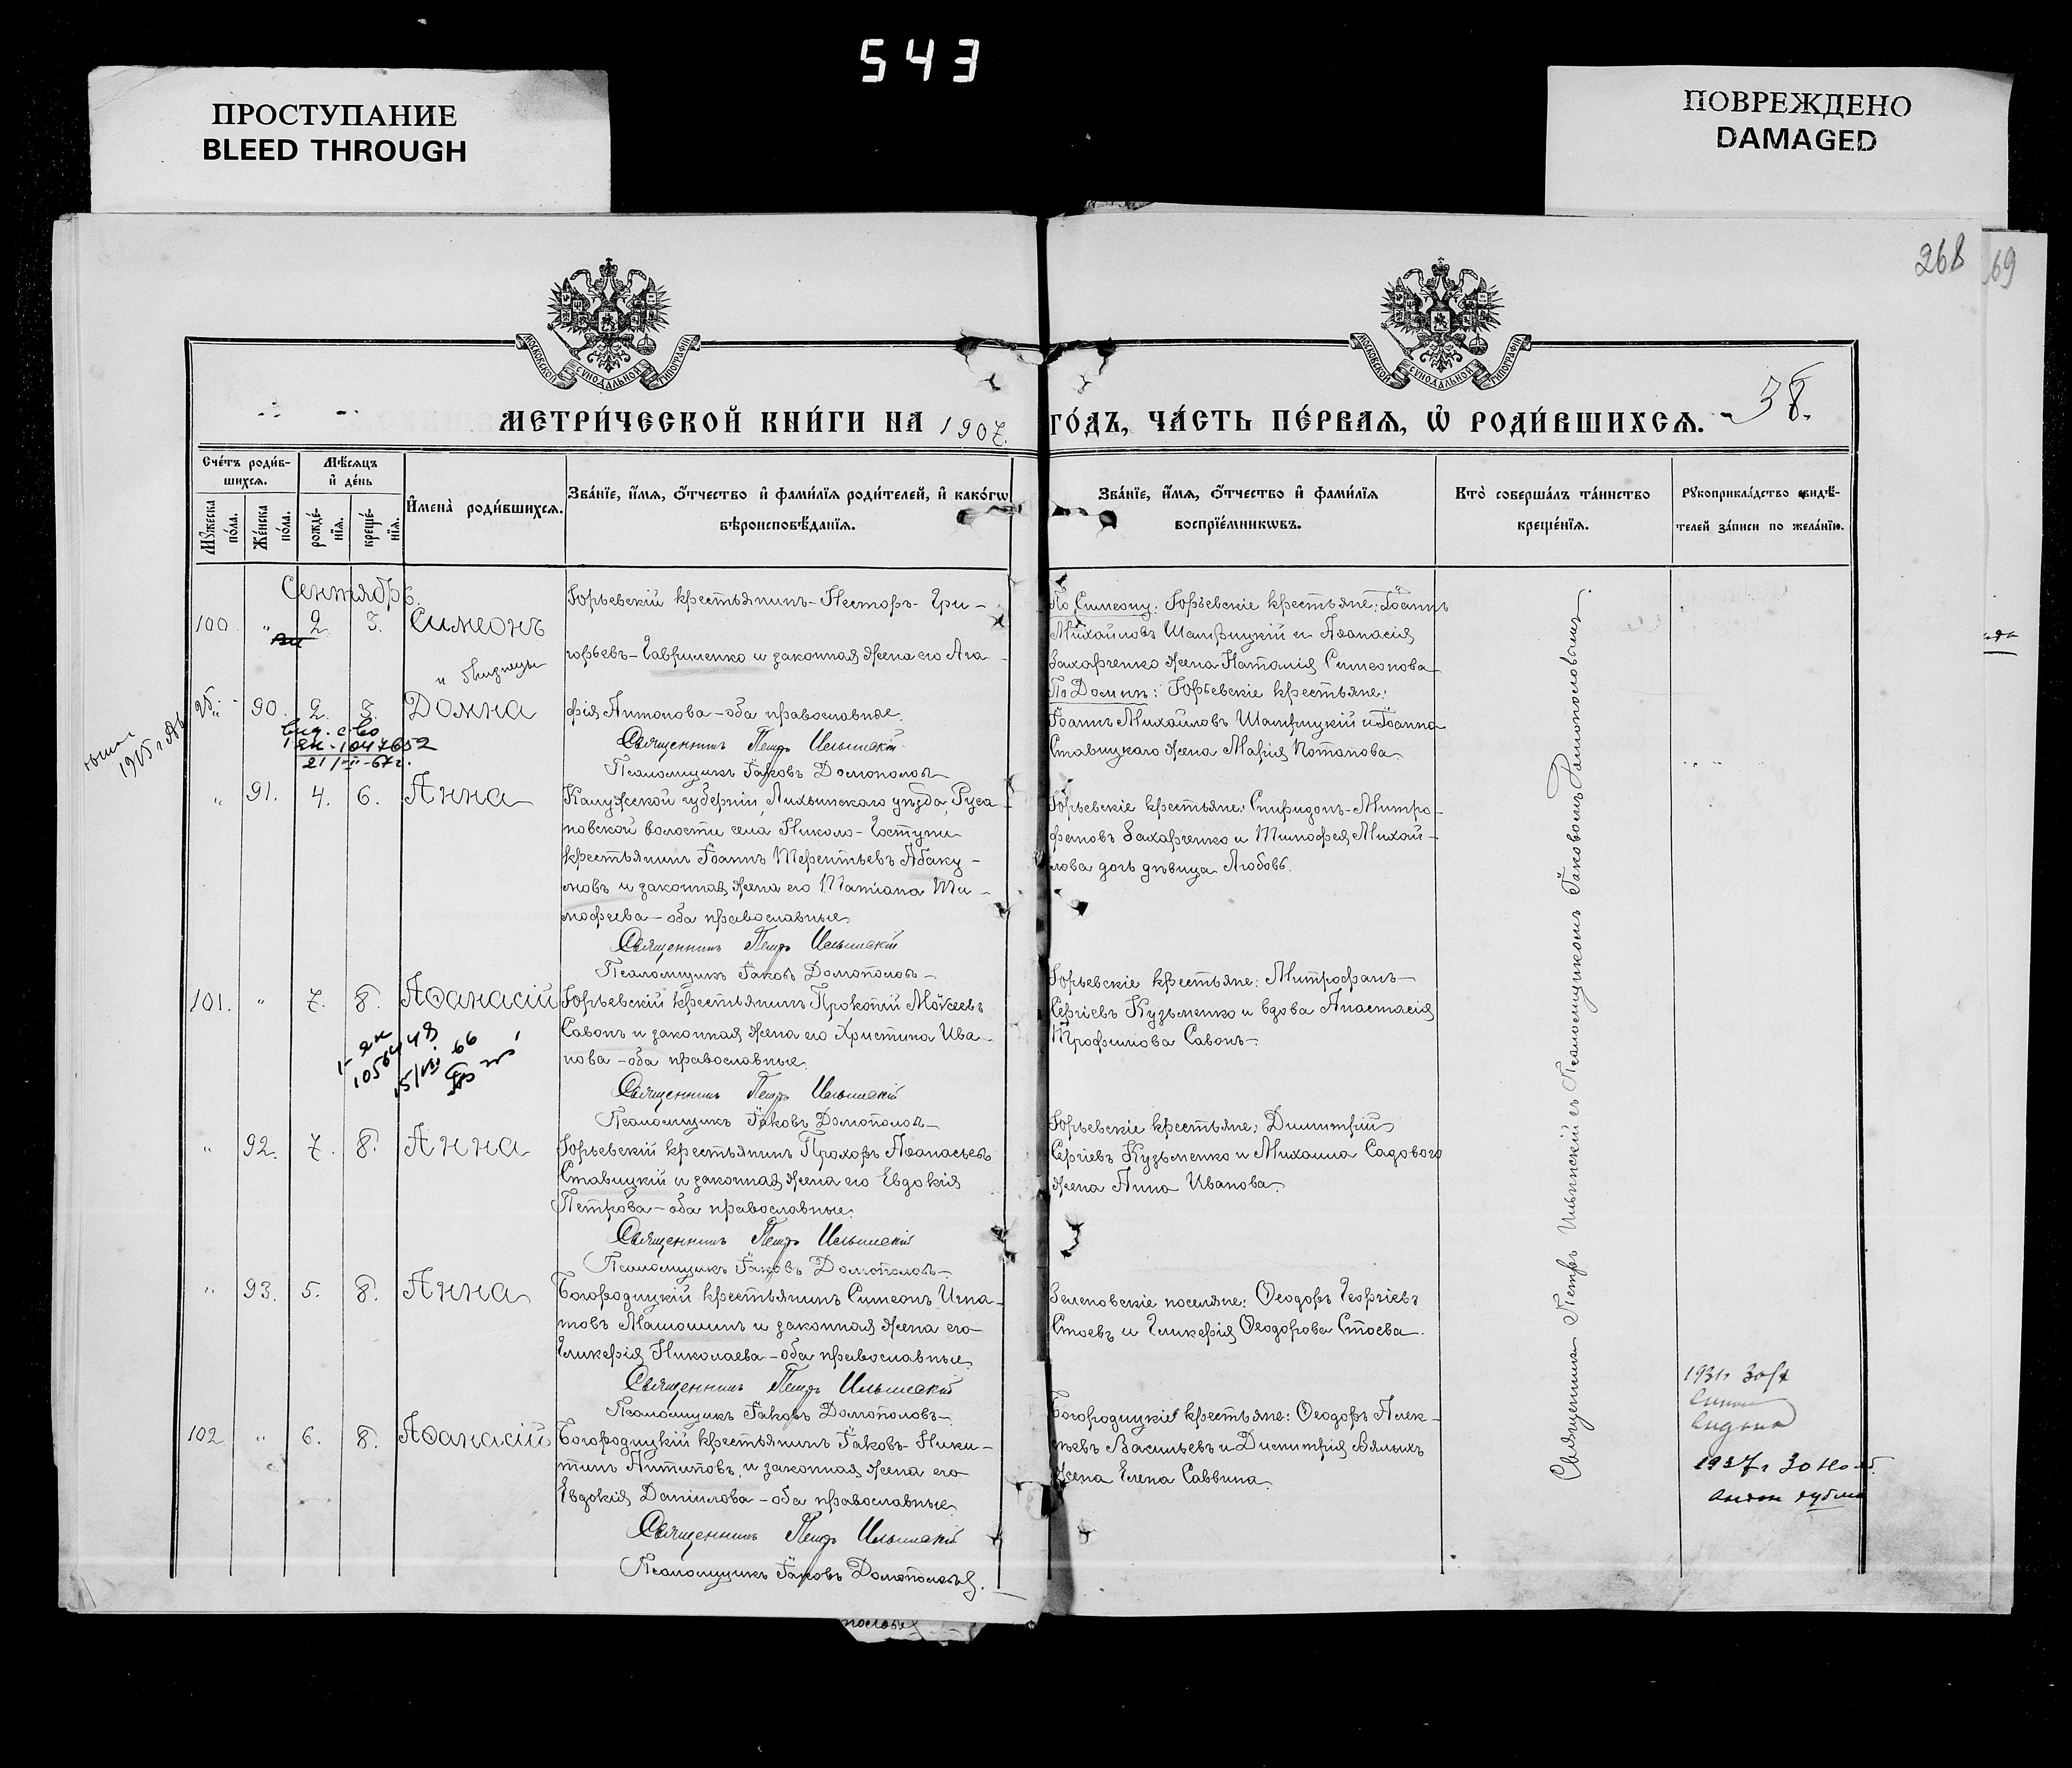 543
ПРОСТУПАНИЕ
BLEED THROUGH
ПОВРЕЖДЕНО
DAMAGED
268
69
МОСКОВСКОЙ СѴНОДАЛЬНОЙ ТИПОГРАФІИ
МОСКОВСКОЙ СѴНОДАЛЬНОЙ ТИПОГРАФІИ
38.
МЕТРИ́ЧЕСКОЙ КНИ́ГИ НА 1907.
ГО́ДЪ, ЧА́СТЬ ПЕ́РВАѦ, Ѡ РОДИ́ВШИХСѦ.
Сче́тъ роди́в-
шихсѧ.
Мѣ́сѧцъ
и҆ де́нь
Мꙋ́жеска
по́ла.
Же́нска
по́ла.
рожде́-
нїѧ.
креще́-
нїѧ.
И҆мена̀ роди́вшихсѧ.
Зва́нїе, и҆́мѧ, ѻ҆́тчество и҆ фами́лїѧ роди́телей, и҆ како́гѡ
вѣроисповѣ́данїѧ.
Зва́нїе, и҆́мѧ, ѻ҆́тчество и҆ фами́лїѧ
воспрїе́мникѡвъ.
Кто̀ соверша́лъ та́инство
креще́нїѧ.
Рꙋкоприкла́дство свидѣ́-
телей за́писи по жела́нїю.
Сентябрь.
100 " 2. 3. Симеонъ
и близнецы
90. 2. 3. Домна
Юрьевскій крестьянинъ Несторъ Гри-
горьевъ Гавриленко и законная жена его Ага-
фія Антонова – оба православные.
Священникъ Петръ Ильинскій
Псаломщикъ Іаковъ Домополов
По Симеону: Юрьевскіе крестьяне: Іоаннъ
Михайловъ Шатрицкій и Аѳанасія
Захарченко жена Наталія Симеонова
По Домнѣ: Юрьевскіе крестьяне:
Іоаннъ Михайловъ Шатрицкій и Іоанна
Ставицкаго жена Марія Потапова
1905 г
1 ЯК-1047652
21/II-67г.
" 91. 4. 6. Анна
Калужской губерніи, Лихвинскаго уѣзда, Руса-
новской волости села Николо-Гостуни
крестьянинъ Іоаннъ Терентьевъ Абаку-
мовъ и законная жена его Татіана Ти-
моѳеева – оба православные.
Священникъ Петръ Ильинскій
Псаломщикъ Іаковъ Домополов
Юрьевскіе крестьяне: Спиридонъ Митро-
фановъ Захарченко и Тимоѳея Михай-
лова дочь дѣвица Любовь.
101. " 7. 8. Аѳанасій
Юрьевскій крестьянинъ Прокопій Моѵсеевъ
Савонъ и законная жена его Христина Ива-
нова – оба православные.
Священникъ Петръ Ильинскій
Псаломщикъ Іаковъ Домополов
Юрьевскіе крестьяне: Митрофанъ
Сергіевъ Кузьменко и вдова Анастасія
Трофимова Савонъ
" 92. 7. 8. Анна
Юрьевскій крестьянинъ Прохоръ Аѳанасьевъ
Ставицкій и законная жена его Евдокія
Петрова – оба православные.
Священникъ Петръ Ильинскій
Псаломщикъ Іаковъ Домополов
Юрьевскіе крестьяне: Димитрій
Сергіевъ Кузьменко и Михаила Садового
жена Анна Иванова.
" 93. 5. 8. Анна
Богородицкій крестьянинъ Симеонъ Игна-
товъ Матюшинъ и законная жена его
Гликерія Николаева – оба православные.
Священникъ Петръ Ильинскій
Псаломщикъ Іаковъ Домополовъ
Зеленовскіе поселяне: Ѳеодоръ Георгіевъ
Стоевъ и Гликерія Ѳеодорова Стоева.
102. " 6. 8. Аѳанасій
Богородицкій крестьянинъ Іаковъ Ники-
тинъ Антиповъ, и законная жена его
Евдокія Даніилова – оба православные
Священникъ Петръ Ильинскій
Псаломщикъ Іаковъ Домополовъ.
Богородицкіе крестьяне: Ѳеодоръ Алек-
сѣевъ Васильевъ и Димитрія Вялыхъ
жена Елена Саввина.
Священникъ Петръ Ильинскій съ Псаломщикомъ Іаковомъ Домополовымъ.